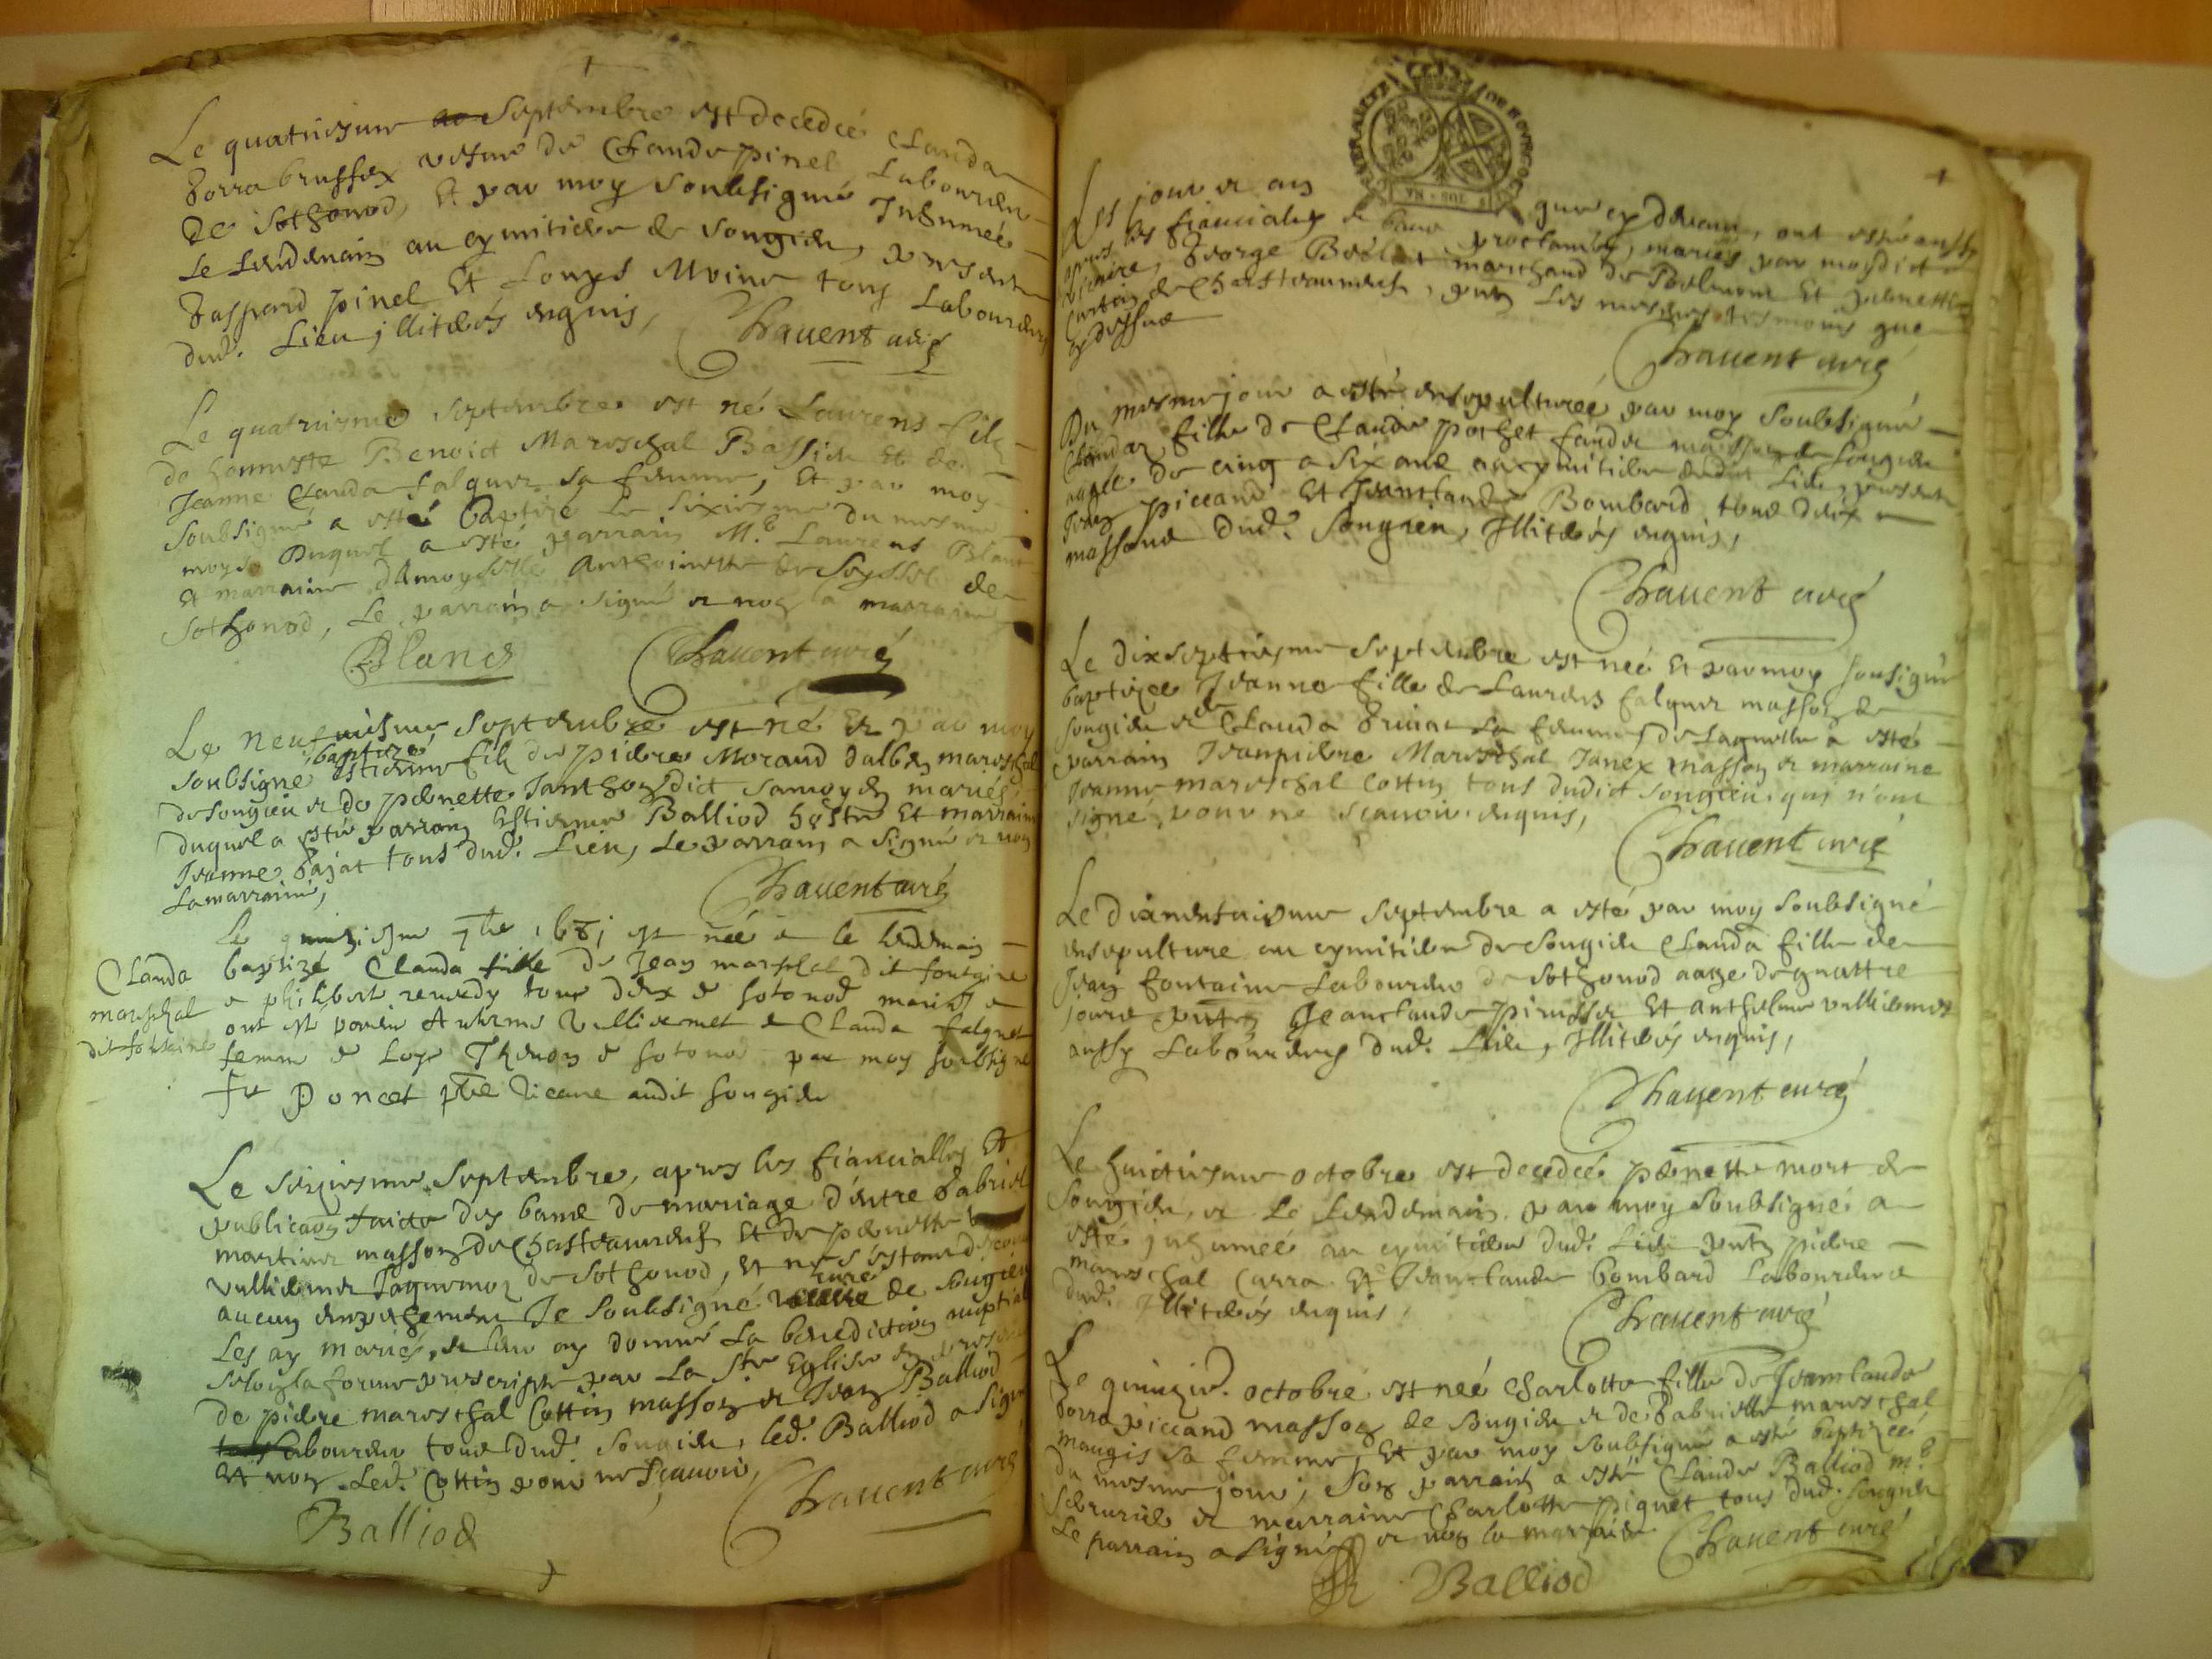 Le quatriesme septembre est decedeé Clauda
vefue de Claude pinel Laboureur
de Sothonod, Et par moy soubsigné Inhumeé
Le Lendemain au cymitiere de Songieu, presents
Gaspard pinel Et Louys Moine tous Laboureurs
dud. Lieu, illiterés enquis,
Chauent curé
Le quatriesme septembre est né Laurens fils
de honneste Benoict Mareschal Bassieu Et de
Jeanne Clauda falquet sa femme, Et par moy
Soubsigné a esté baptizé Le sixiesme du mesme
moys Duquel a esté parrain M.e Laurens Blanc
Et marraine damoyselle Anthoinette de Seyssel de
Sothonod, Le parrain a signé et non la marraine
Blanc
Chauent curé
Le neufuiesme septembre est né Et par moy
soubsigné baptizé Estienne fils de pierre Morand dalbey mareschal
de Songieu et de pernette Janthon dict Samoyen mariés,
duquel a esté parrain Estienne Balliod hoste Et marraine
Jeanne Pajat tous dud. Lieu, Le parrain a signé et non
La marraine,
Chauent curé
Le quinziesme 7bre 1671 est née et le lendemain
baptizé Clauda fille de Jean mareschal dit fontaine
Clauda
mareschal
dit fontaine
et philiberte remedy tous deux de sotonod mariés et
ont esté parrin Anthelme Vulliermet et Clauda falquet
femme de Loys Thevon de sotonod par moy soubsigné
Poncet pbre Vicaire audit songieu
Le seiziesme septembre, apres les fiancialles Et
publicaons des bans de mariage d'entre Gabriel
martiner masson de Chasteauneuf Et de pernette
vulliermet Jaquemoz de Sothonod, Et ne s'estant descouvert
aucun empeschement Je soubsigné curé de Songieu
Les ay mariés, et leur ay donné La benediction nuptiale
selon la forme prescripte par La ste Eglise en presence
de pierre mareschal Cottin masson et Jean Balliod
Laboureur tous dud. Songieu, led. Balliod a signé
Et non Led. Cottin pour ne scauoir,
Chauent curé
Balliod
GENERALITE DE BOURGOGNE
Les jour et an que cy deuant, ont esté aussy
apres les fiancialles et bans proclamés, mariés par moydict
vicaire, George marchand de Et pernette
de Chasteauneuf, pntz Les mesmes tesmoins que
cy dessus
Chauent curé
Du mesme jour a esté ensepultureé par moy soubsigné
Claudaz fille de Claude pochet masson de Songieu
aagée de cinq a six ans au cymitiere dudit Lieu, presents
Jean piccand Et Jeanclaude Bombard tous deux
massons dud. Songieu, Illiterés enquis,
Chauent curé
Le dixseptiesme septembre est neé Et par moy sousigné
baptizeé Jeanne fille de Laurens falquet masson de
songieu et de Clauda sa femme, de Laquelle a esté
parrain Jeanpierre Mareschal Janex masson et marraine
Jeanne mareschal Cottin tous dudict Songieu qui n'ont
signé, pour ne scauoir, enquis,
Chauent curé
Le dixneufuiesme septembre a esté par moy soubsigné
ensepulture au cymitiere de Songieu Clauda fille de
Jean fontaine Laboureur de Sothonod aageé de quattre
jours pntz Jeanclaude Et anthelme vulliermet
aussy Laboureurs dud. Lieu, Illiterés enquis,
Chauent curé
Le huictiesme octobre est decedeé pernette mort de
Songieu, et Le Lendemain par moy soubsigné a
esté inhumeé au cymitiere dud. Lieu pntz pierre
mareschal Carra Et Jeanclaude bombard Laboureurs
dud. Illiterés enquis,
Chauent curé
Le quinzie. octobre est neé Charlotte fille de Jeanclaude
piccand masson de Songieu et de Gabrielle mareschal
maugis sa femme, Et par moy soubsigné a esté baptizeé
Du mesme jour, son parrain a esté Claude Balliod m.e
serurier et marraine Charlotte piquet tous dud. songieu
Le parrain a signé et non la marraine
Chauent curé
Balliod